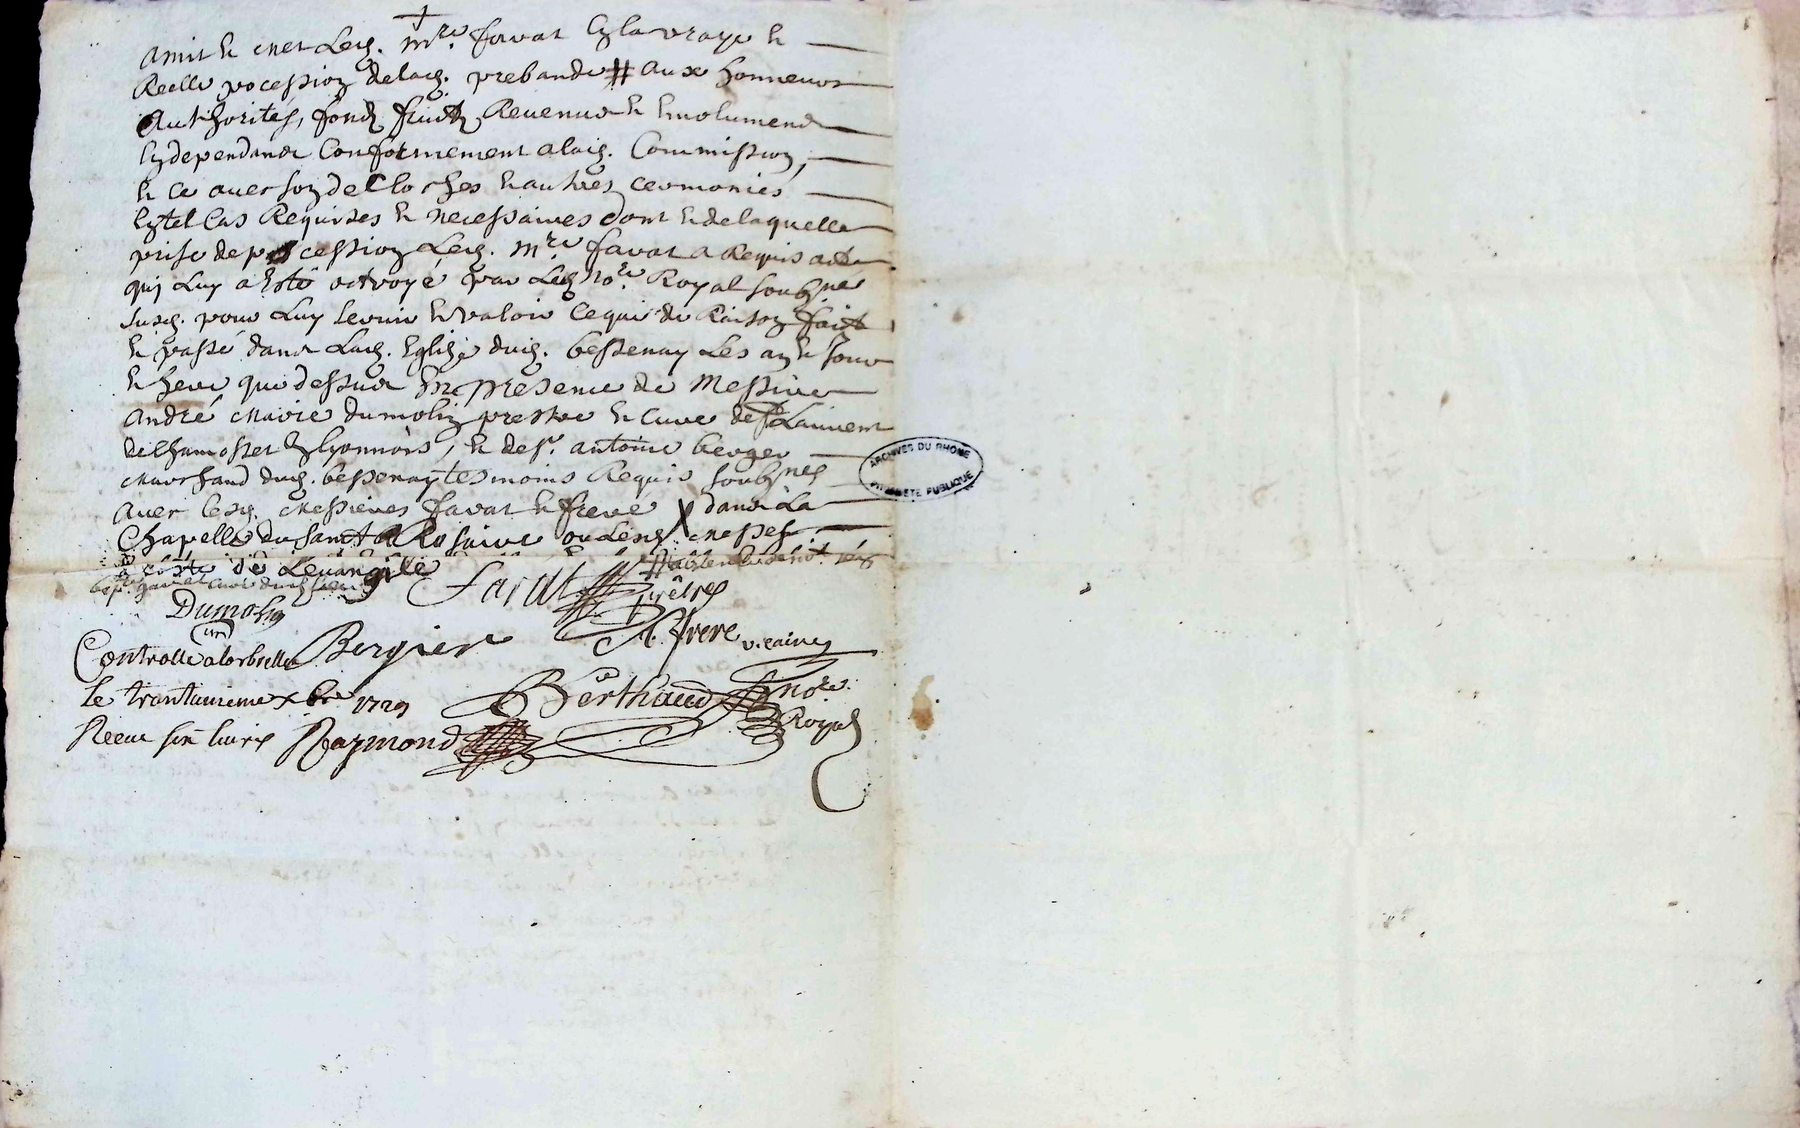 amit et met Led. mre. favat En la vraye et
Reelle pocession delad. prebande # aux honneurs
Authorités, fonds fruits Revenus et Emolumens
En dependans Conformement a lad. Commission,
et Ce avec son de Cloches et autres ceremonies
En tel Cas Requises et necessaires dont et de laquelle
prise de pocession Led. mre. favat a Requis acte
qui Luy a Esté octroyé par Led. nore. Royal soubsnes
susd. pour Luy servir et valoir Ce que de Raison fait
et passé dans Lad. Eglize dud. bessenay Les an et jour
et heure que dessus En presence de Messire
André Marie dumolin prestre et Curé de St Laurent
de Chamosset En lyonnois, et de sr. antoine berger
Marchand dud. bessenay tesmoins Requis soubsnes
avec lesd. Messieurs favat et frere X dans La
Chapelle du Saint Rosaire
a costé de L'evangile
Favat
prêtres
Dumolin
curé
A. frere vicaire
Controllé a larbrelle Bergier
le trantunieme xbre 1729 Berthaud nore.
Royal
Receu six livres Raymond
ARCHIVES DU RHONE
PROPRIETE PUBLIQUE